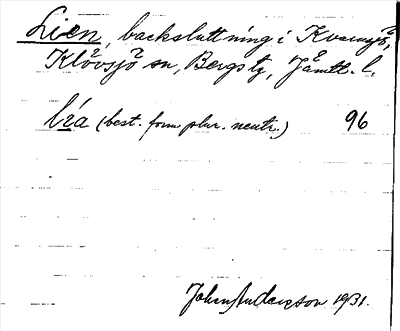 Lien, backsluttning i Kvarnsjö,
Klövsjö sn, Bergs tg, Jämtl. l.
lía (best. form plur. neutr.) 96
John Andersson 1931.